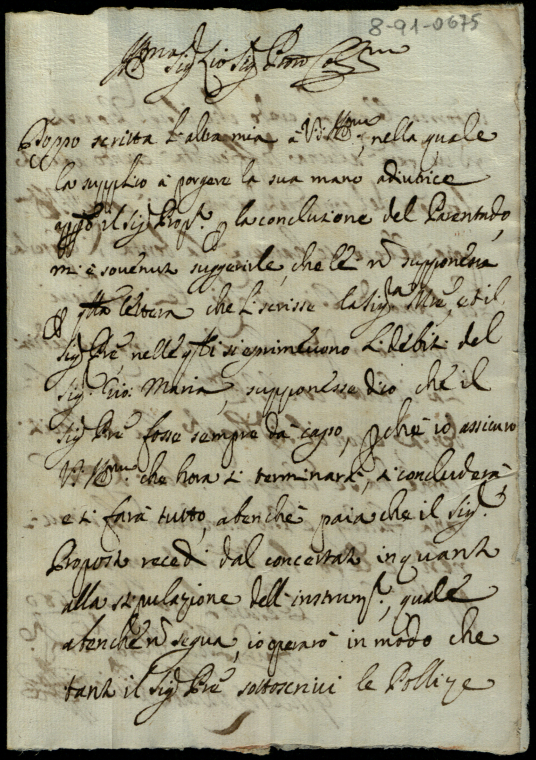 8-91-0675
Sig. Zio Sig.
Doppo scritta l'altra mia à V.S. Ill.ma, nella quale
la supplico à porgere la sua mano adiutrice
il Sig. Prop.t la concluzione del Parentado,
m'è sovenut suggerirle, che se n supponeria
lettera che li scrisse la Sig.ra Mre, et il
Sig. Pre, nelle qti si esprimeuono li debiti del
Sig. Gio: Maria, supponesse dico che il
Sig. Pre fosse sempre da capo, che io assicuro
V.S. Ill.ma che hora si terminarà, si concluderà
e si farà tutto, abenche paia che il Sig.r
Propost recedi dal concertat in quant
alla stipulazione dell'instrum.t, quale
abenche n segua, io operarò in modo che
tant il Sig. Pre sottoscrivi le Pollize